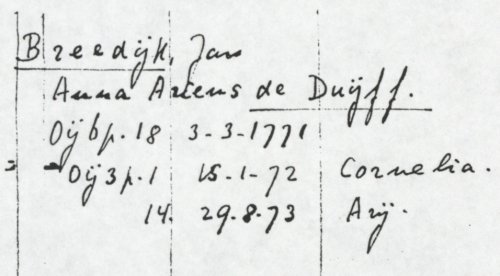 Breedijk, Jan
Anna Ariens de Duijff.
Oÿ6p.18 3-3-1771
Oÿ3p.1 15-1-72 Cornelia.
14. 29.8.73 Arÿ.